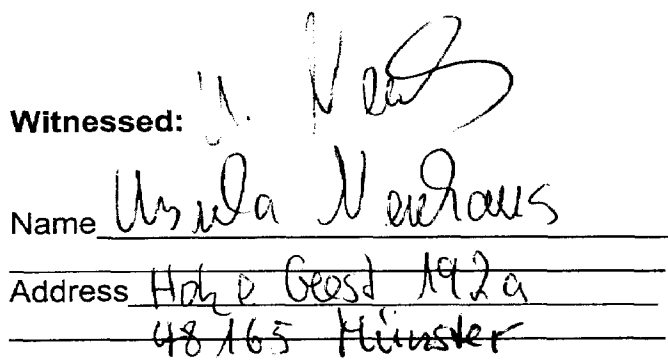 Witnessed: U.
Name Ursula Neuhaus
Address Hohe Geest 192a
48165 Münster